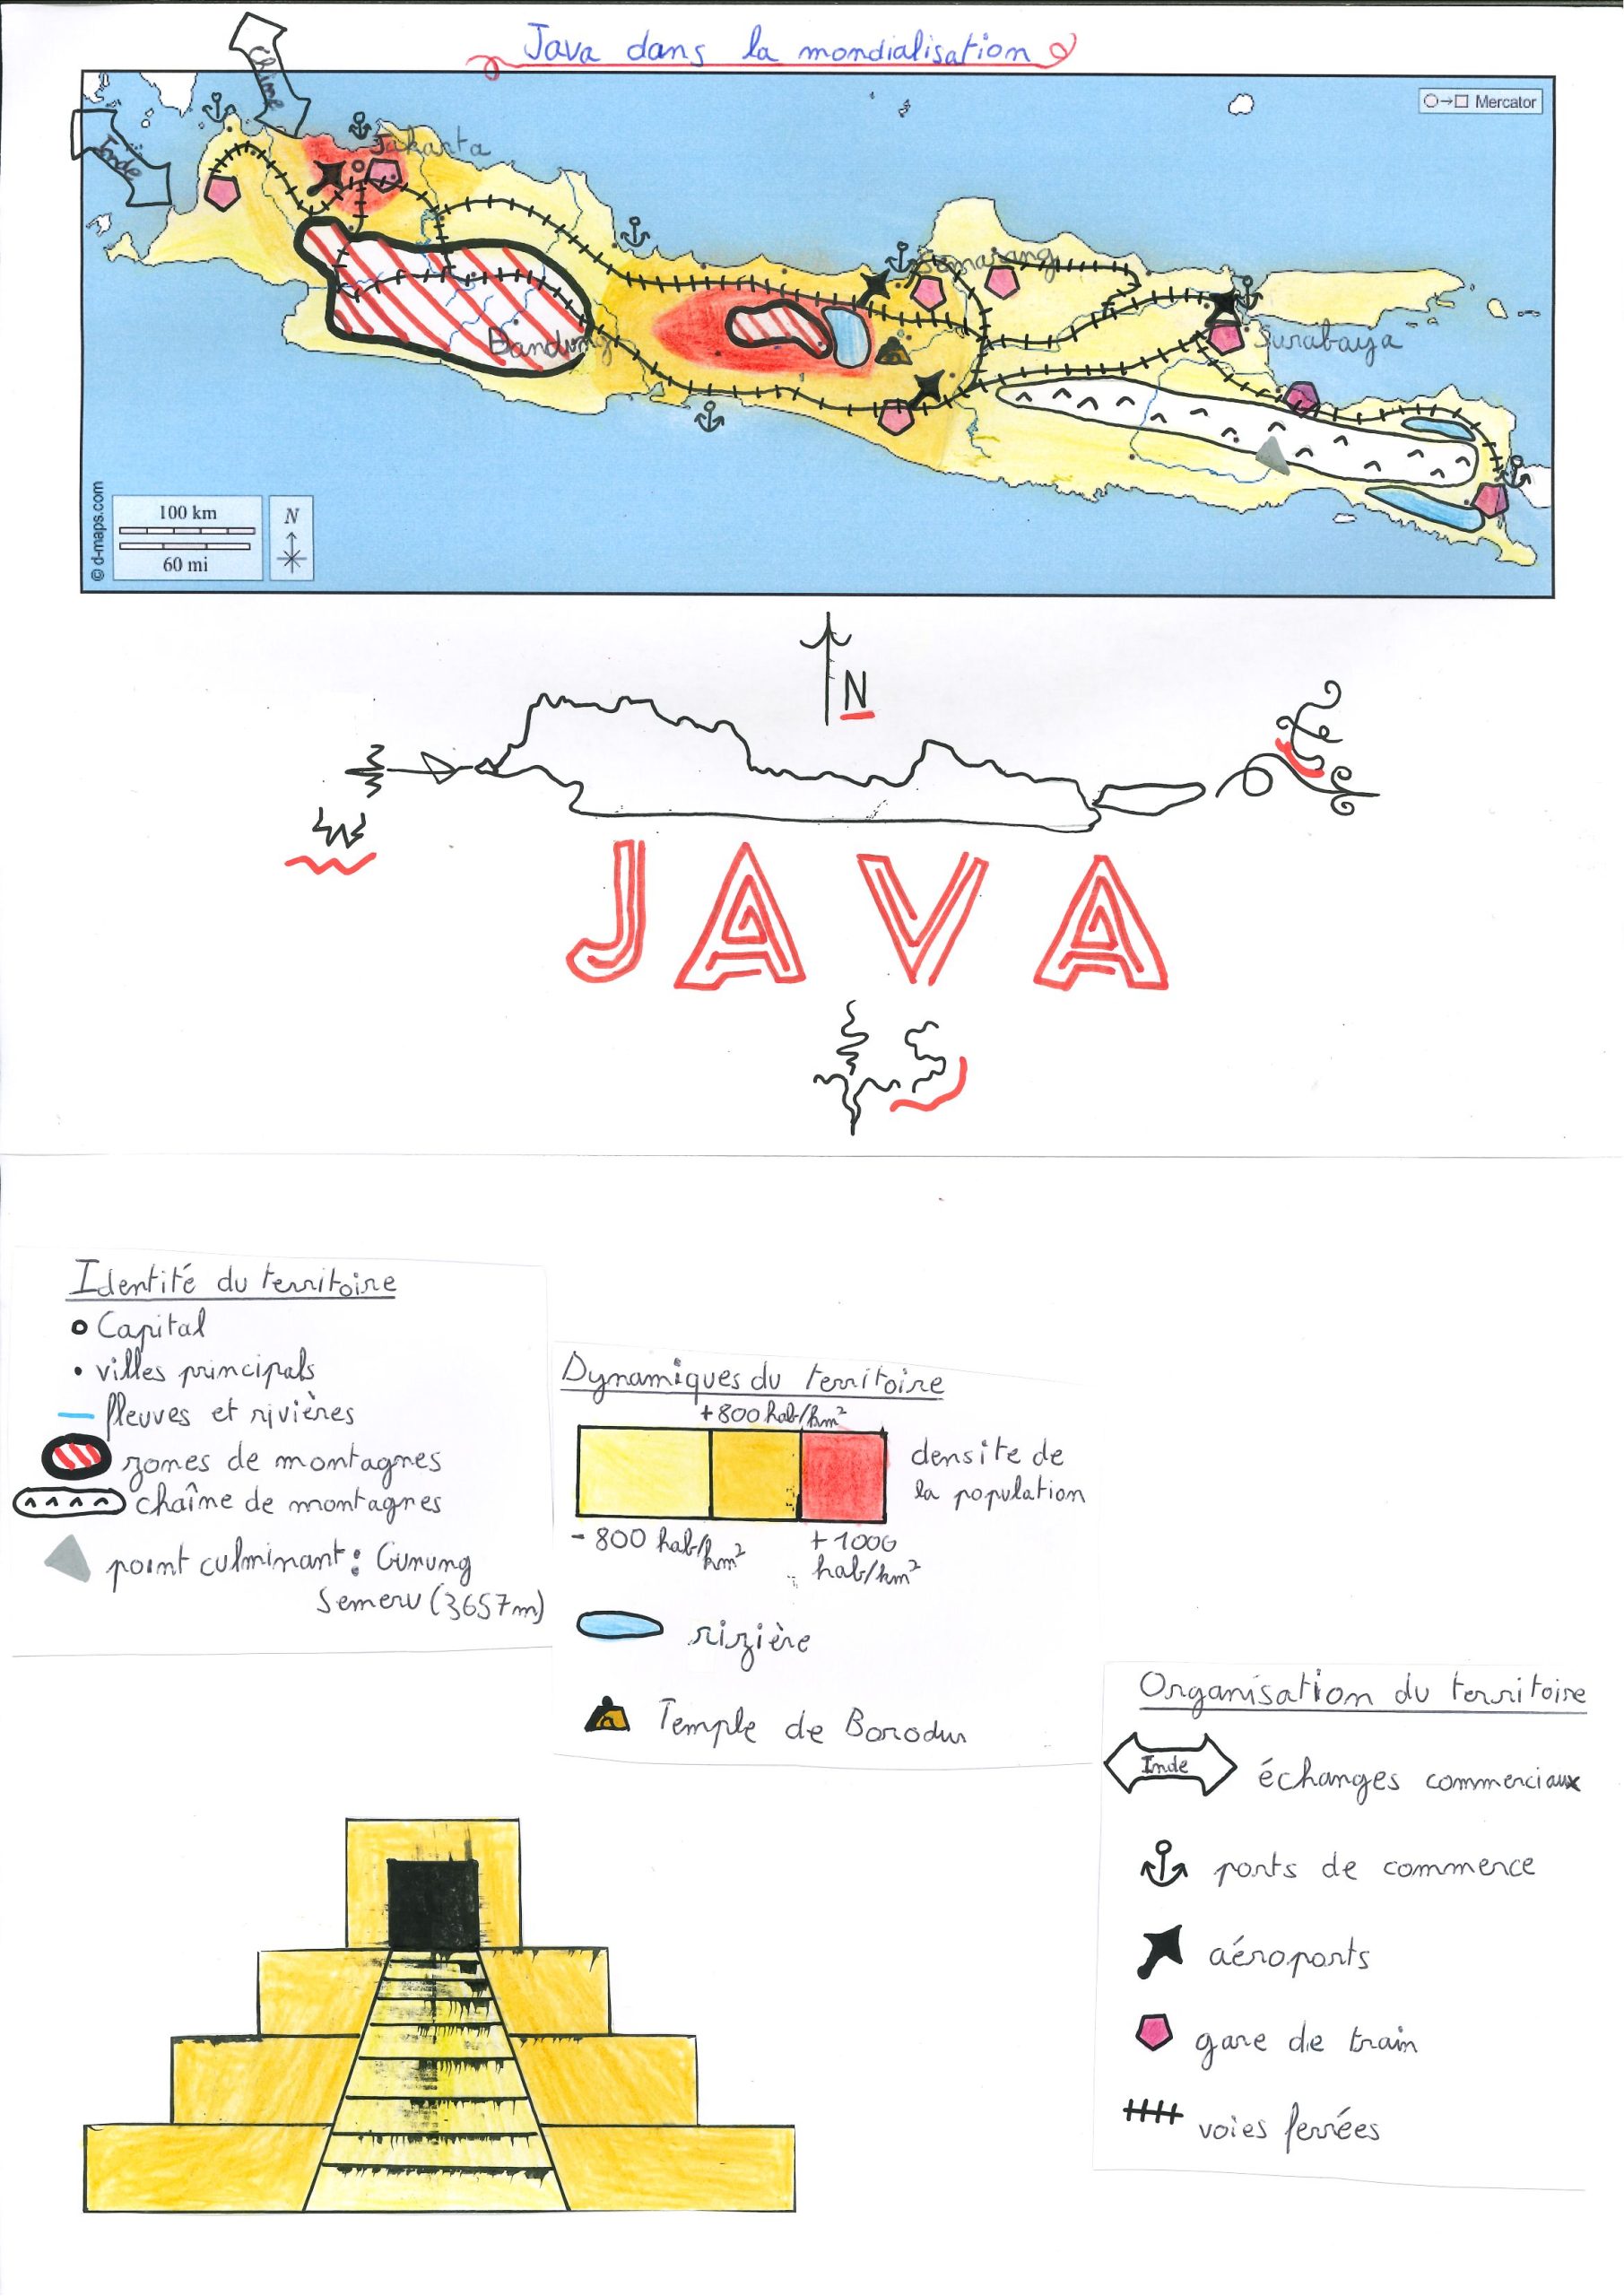 Java dans la mondialisation
Chine
Inde
Mercator
Jakarta
Semarang
Bandung
Surabaya
© d-maps.com
100 km
60 mi
N
N
E
W
JAVA
S
Identité du territoire
Capital
villes principals
fleuves et rivières
zones de montagnes
chaîne de montagnes
point culminant : Gunung
Semeru (3657m)
Dynamiques du territoire
+800 hab/km²
densite de
la population
- 800 hab/km²
+ 1000
hab/km²
rizière
Temple de Borodur
Organisation du territoire
Inde
échanges commerciaux
ports de commerce
aéroports
gare de train
voies ferrées